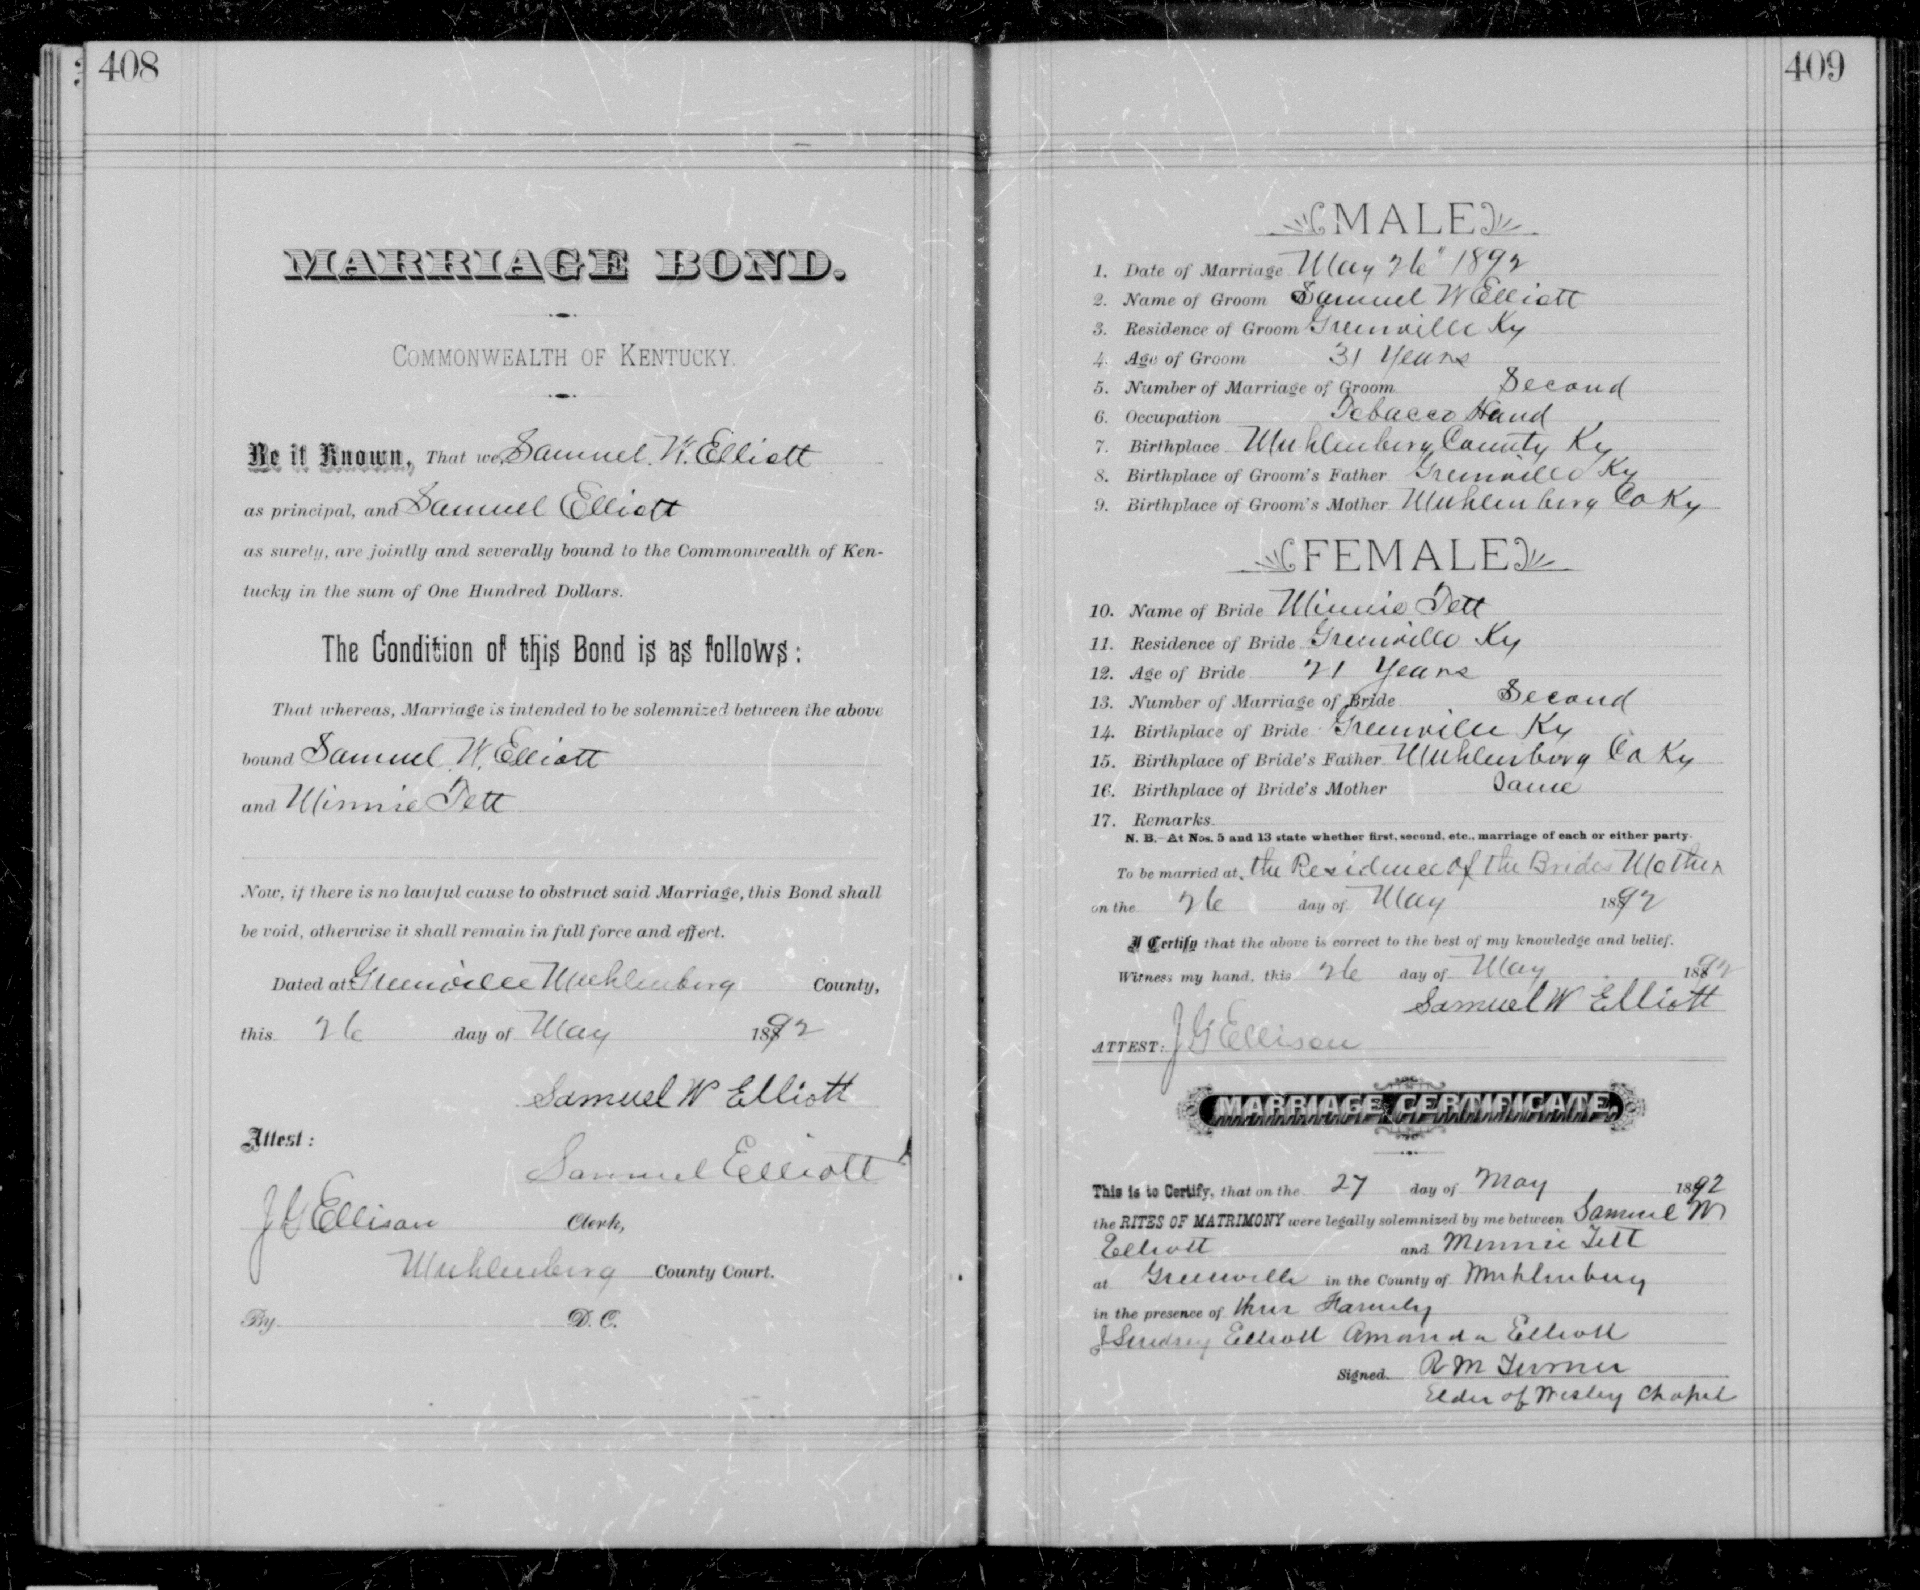 408
MARRIAGE BOND.
COMMONWEALTH OF KENTUCKY.
Be it Known, That we, Samuel. W. Elliott
as principal, and Samuel Elliott
as surety, are jointly and severally bound to the Commonwealth of Ken-
tucky in the sum of One Hundred Dollars.
The Condition of this Bond is as follows:
That whereas, Marriage is intended to be solemnized between the above
bound Samuel. W. Elliott
and Minnie Tett
Now, if there is no lawful cause to obstruct said Marriage, this Bond shall
be void, otherwise it shall remain in full force and effect.
Dated at Greenville Muhlenberg County,
this 26 day of May 1892
Samuel W Elliott
Attest:
Samuel Elliott
J G Ellison Clerk,
Muhlenberg County Court.
By D. C.
409
MALE
1. Date of Marriage May 26" 1892
2. Name of Groom Samuel W Elliott
3. Residence of Groom Greenville Ky
4. Age of Groom 31 Years
5. Number of Marriage of Groom Second
6. Occupation Tobacco Hand
7. Birthplace Muhlenberg County Ky
8. Birthplace of Groom's Father Greenville Ky
9. Birthplace of Groom's Mother Muhlenberg Co Ky
FEMALE
10. Name of Bride Minnie Tett
11. Residence of Bride Greenville Ky
12. Age of Bride 21 Years
13. Number of Marriage of Bride Second
14. Birthplace of Bride Greenville Ky
15. Birthplace of Bride's Father Muhlenberg Co Ky
16. Birthplace of Bride's Mother Same
17. Remarks
N. B.—At Nos. 5 and 13 state whether first, second, etc., marriage of each or either party.
To be married at the Residence of the Brides Mother
on the 26 day of May 1892
I Certify that the above is correct to the best of my knowledge and belief.
Witness my hand, this 26 day of May 1892
Samuel W Elliott
ATTEST: J G Ellison
MARRIAGE CERTIFICATE.
This is to Certify, that on the 27 day of May 1892
the RITES OF MATRIMONY were legally solemnized by me between Samuel W
Elliott and Minnie Tett
at Greenville in the County of Muhlenburg
in the presence of Family
Elliott Amanda Elliott
Signed. R M Turner
Elder of Wesley Chapel